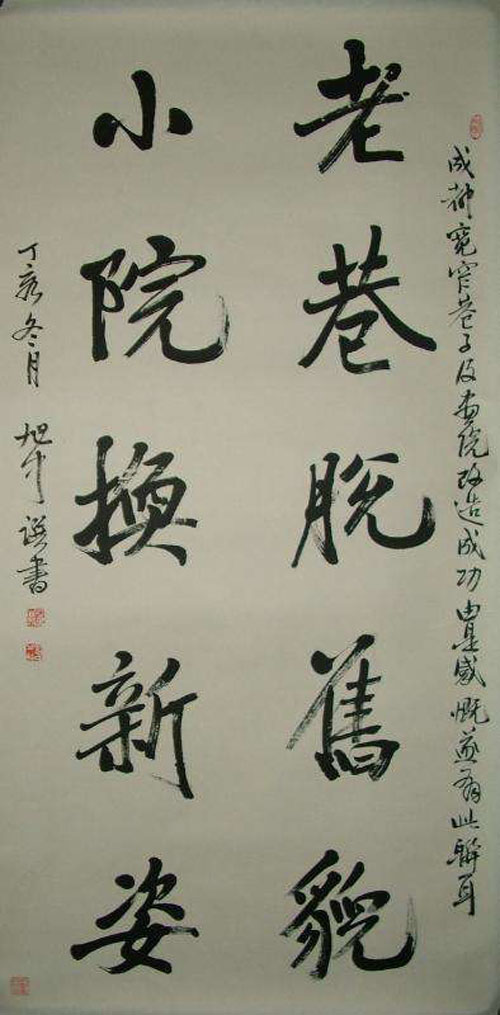 成都宽窄巷子及画院改造成功由是感慨并有此联耳
老巷脱舊貌
小院换新姿
丁亥冬月 旭中 撰書